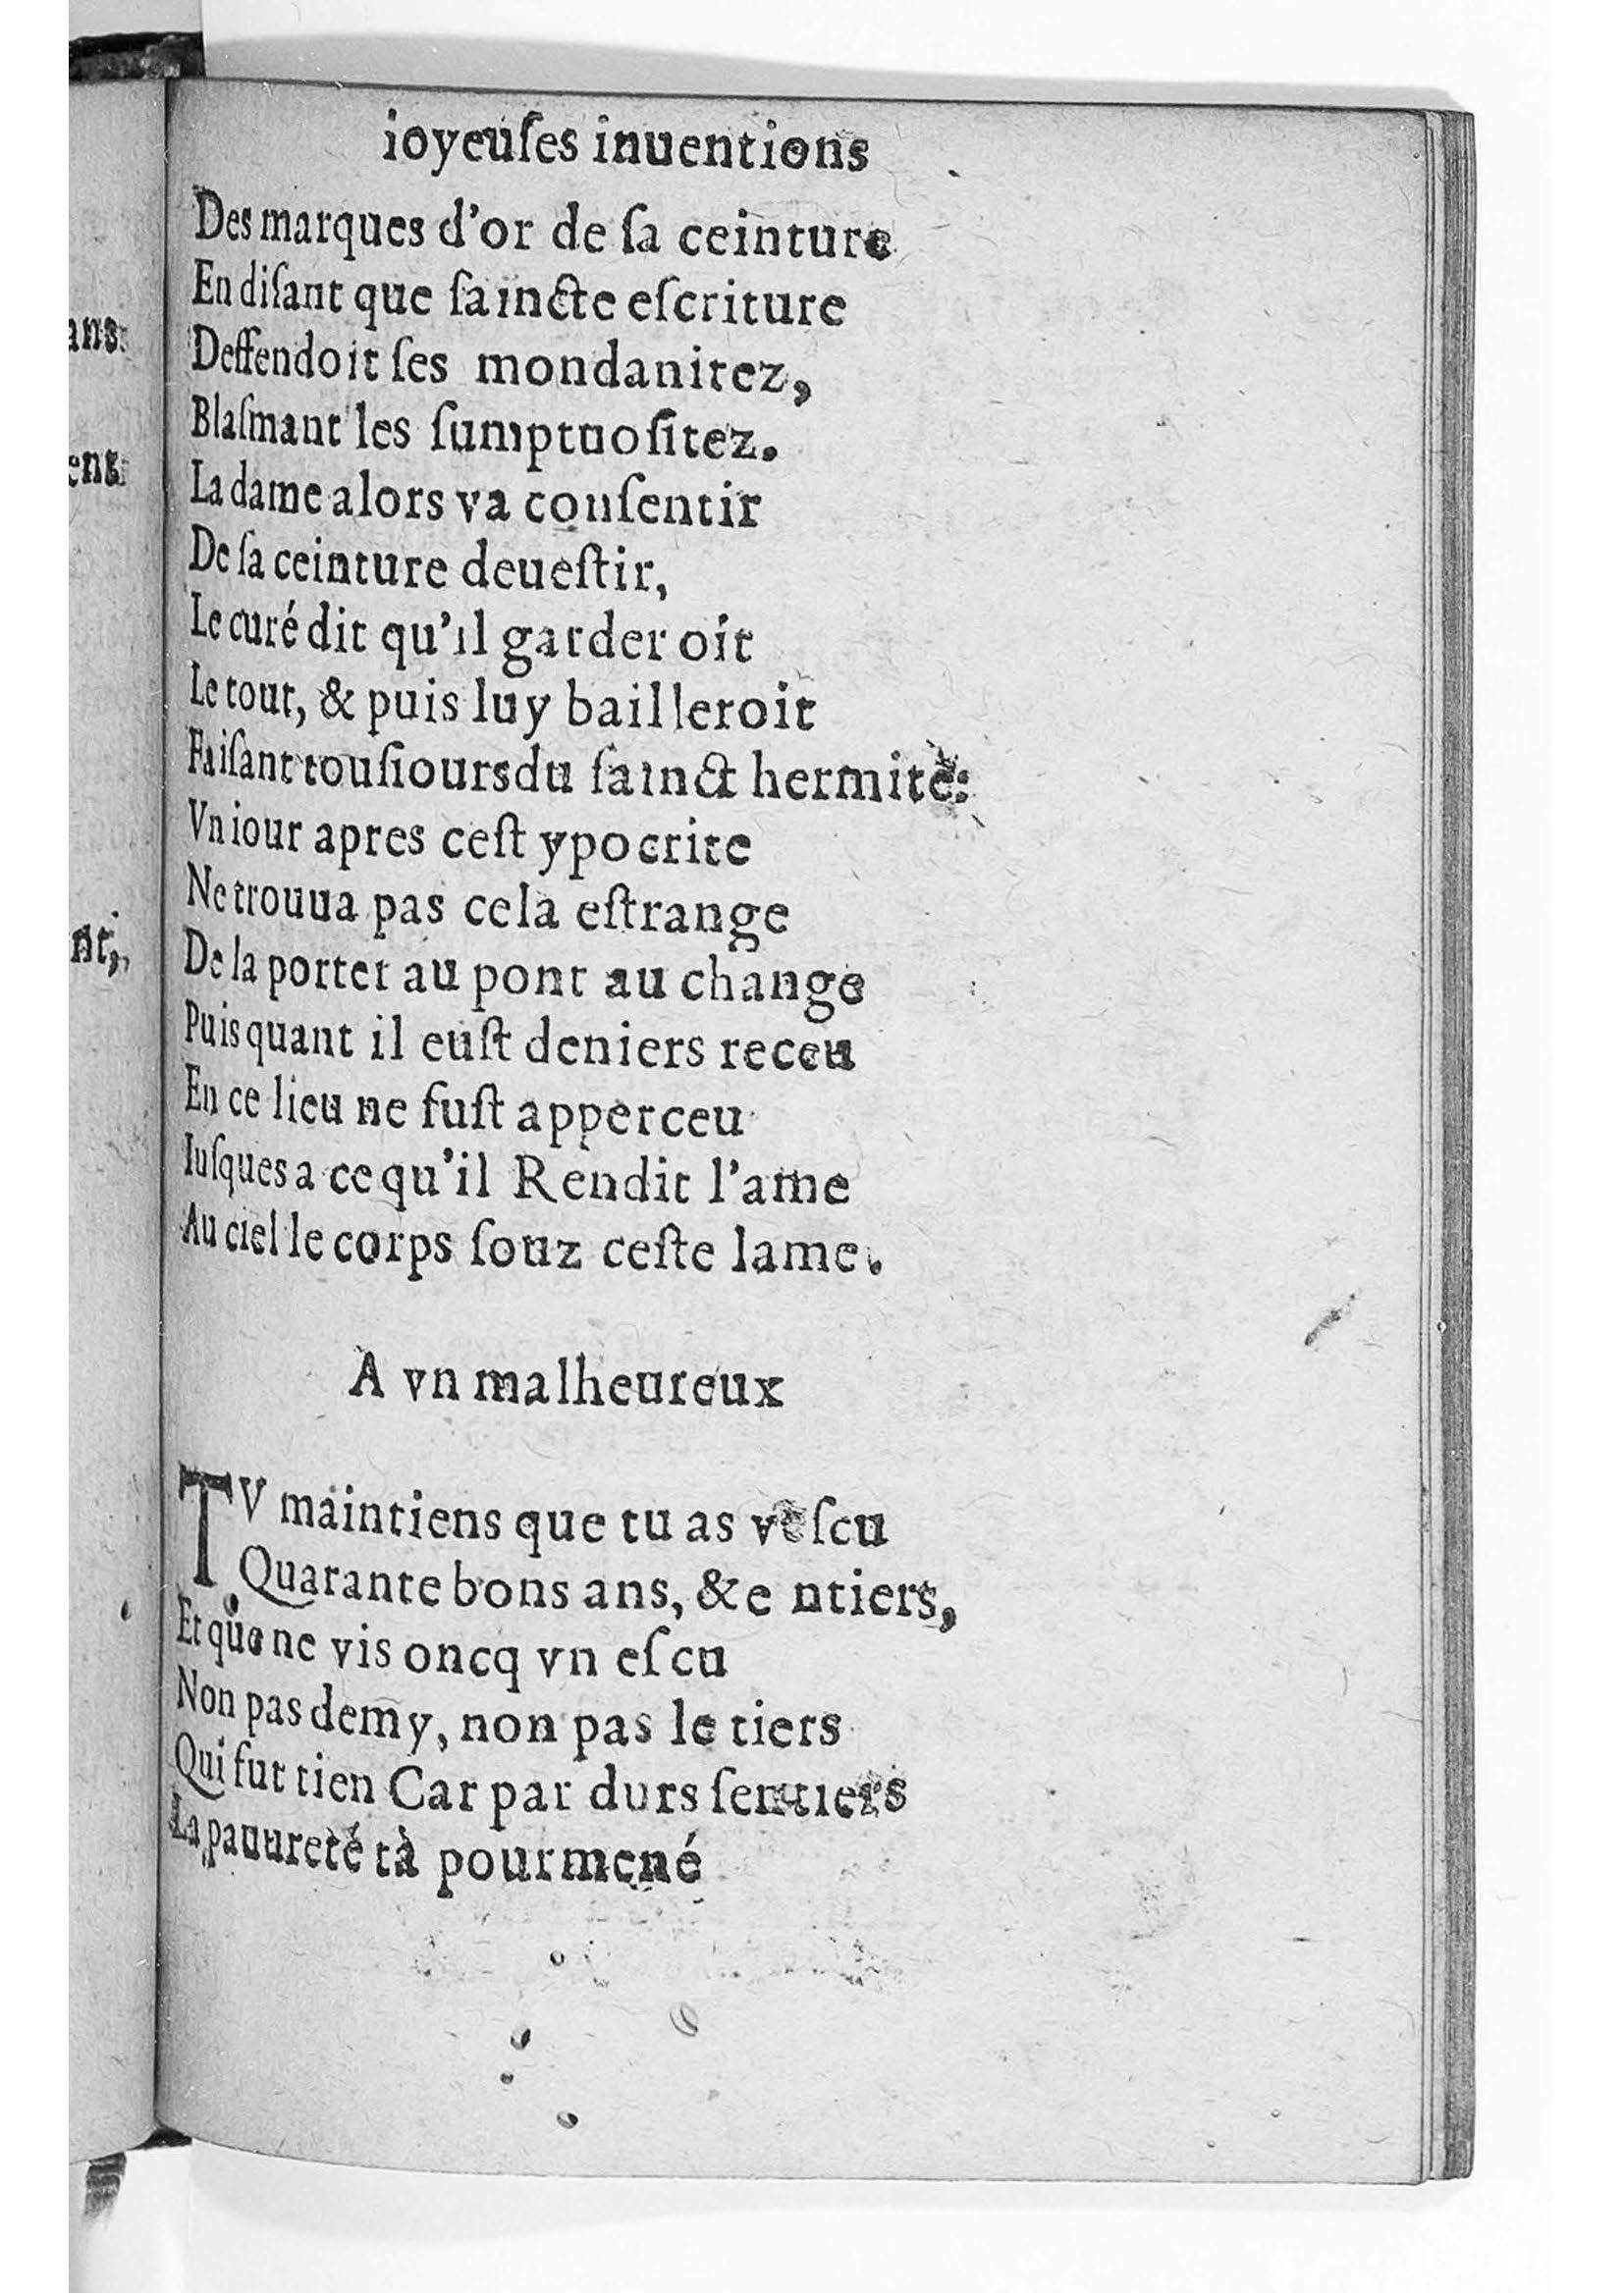 ioyeuſes inuentions
Des marques d'or de ſa ceinture
En diſant que ſaincte eſcriture
Deffendoit ſes mondanitez,
Blaſmant les ſumptuoſitez.
La dame alors va conſentir
De ſa ceinture deueſtir,
Le curé dit qu'il garderoit
Le tout, & puis luy bailleroit
Faiſant touſiours du ſainct hermite:
Vn iour apres ceſt ypocrite
Ne trouua pas cela eſtrange
De la porter au pont au change
Puis quant il euſt deniers receu
En ce lieu ne fuſt apperceu
Iuſques a ce qu'il Rendit l'ame
Au ciel le corps ſouz ceſte lame.
A vn malheureux
TV maintiens que tu as veſcu
Quarante bons ans, & e ntiers,
Et que ne vis oncq vn eſcu
Non pas demy, non pas le tiers
Qui fut tien Car par durs ſentiers
La pauureté tà pourmené
ans
ens
nt,